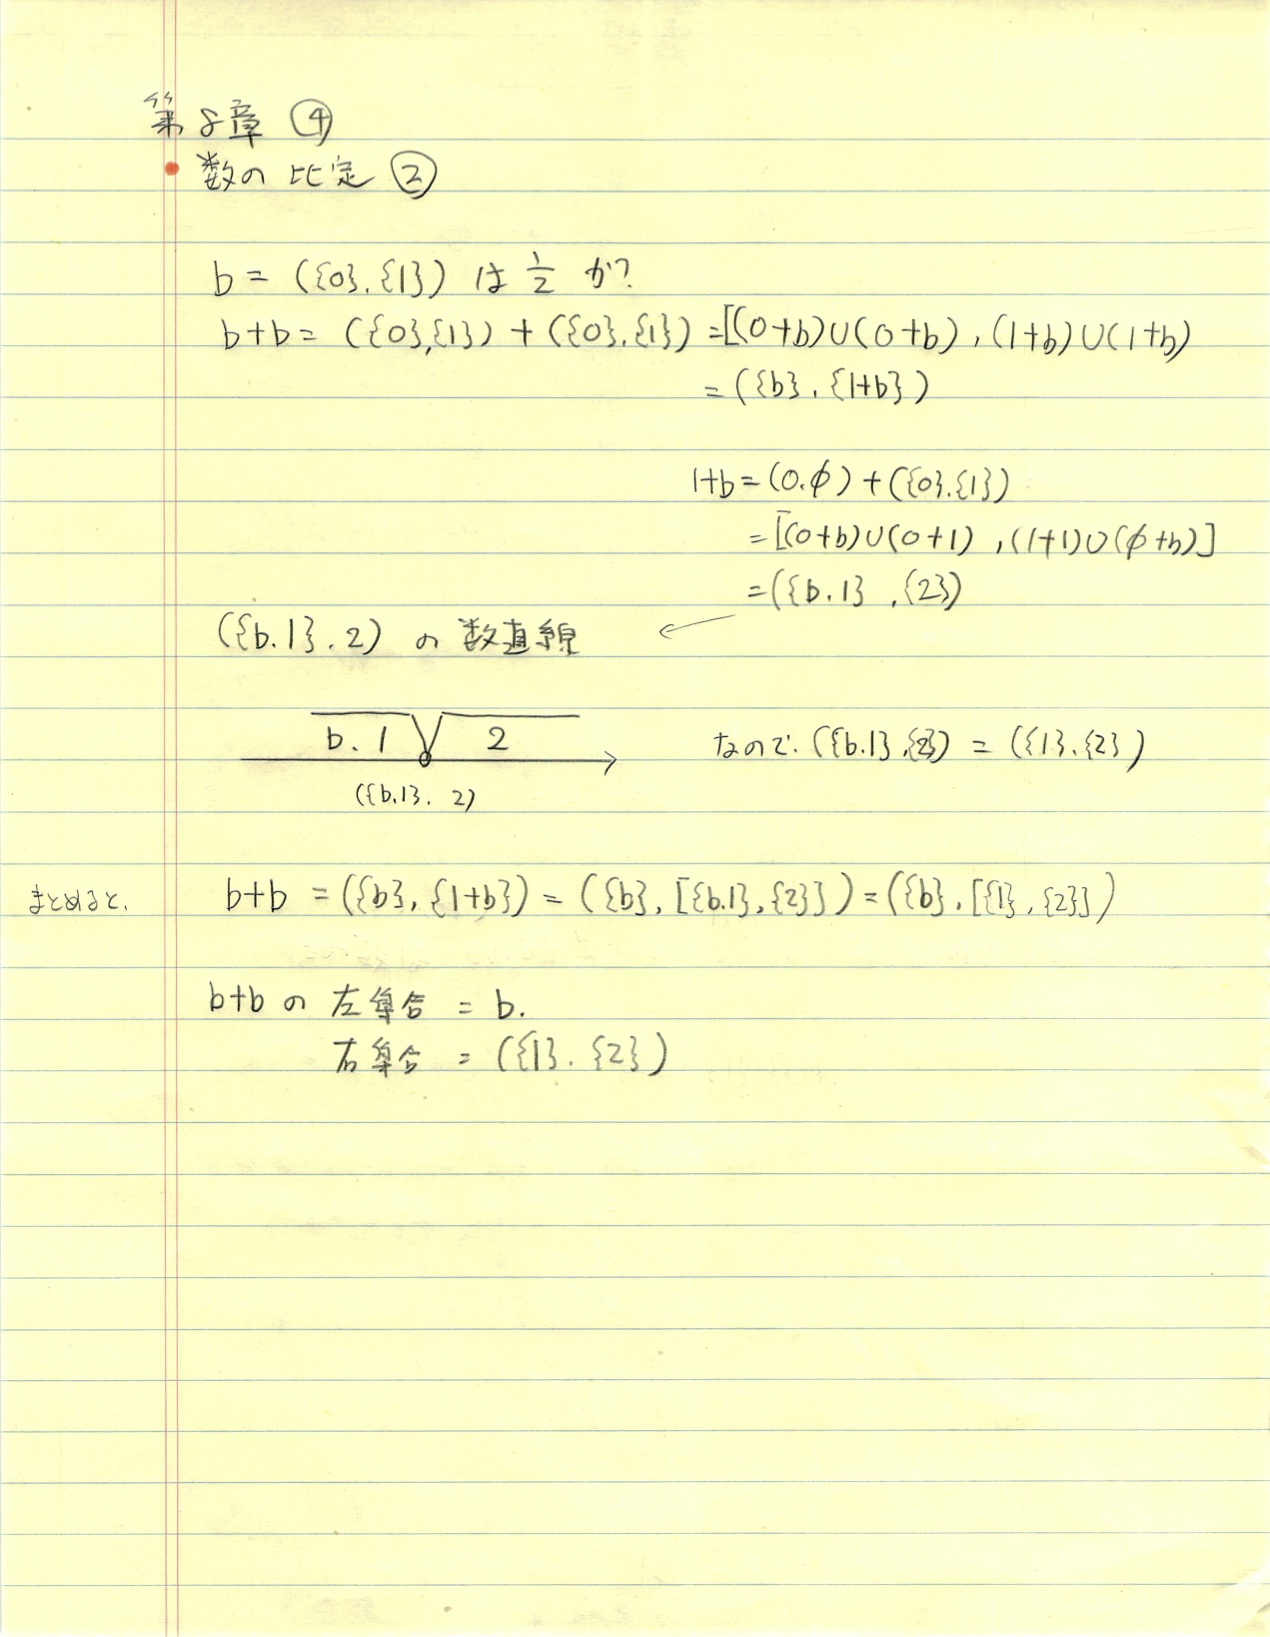 第8章 ④
・数の比定 ②
b = ({0}.{1}) は 1/2 か?
b+b = ({0},{1}) + ({0}.{1}) = [(0+b)∪(0+b) , (1+b)∪(1+b)
= ({b} . {1+b})
1+b = (0.φ) + ({0}.{1})
= [(0+b)∪(0+1) , (1+1)∪(φ+b)]
= ({b.1} , {2})
({b.1} . 2) の 数直線 ←
b. 1 2
なので. ({b.1} ,{2}) = ({1}.{2})
({b.1}. 2)
まとめると. b+b = ({b}, {1+b}) = ({b}, [{b.1},{2}]) = ({b}, [{1} , {2}])
b+b の 左集合 = b.
右集合 = ({1}. {2})